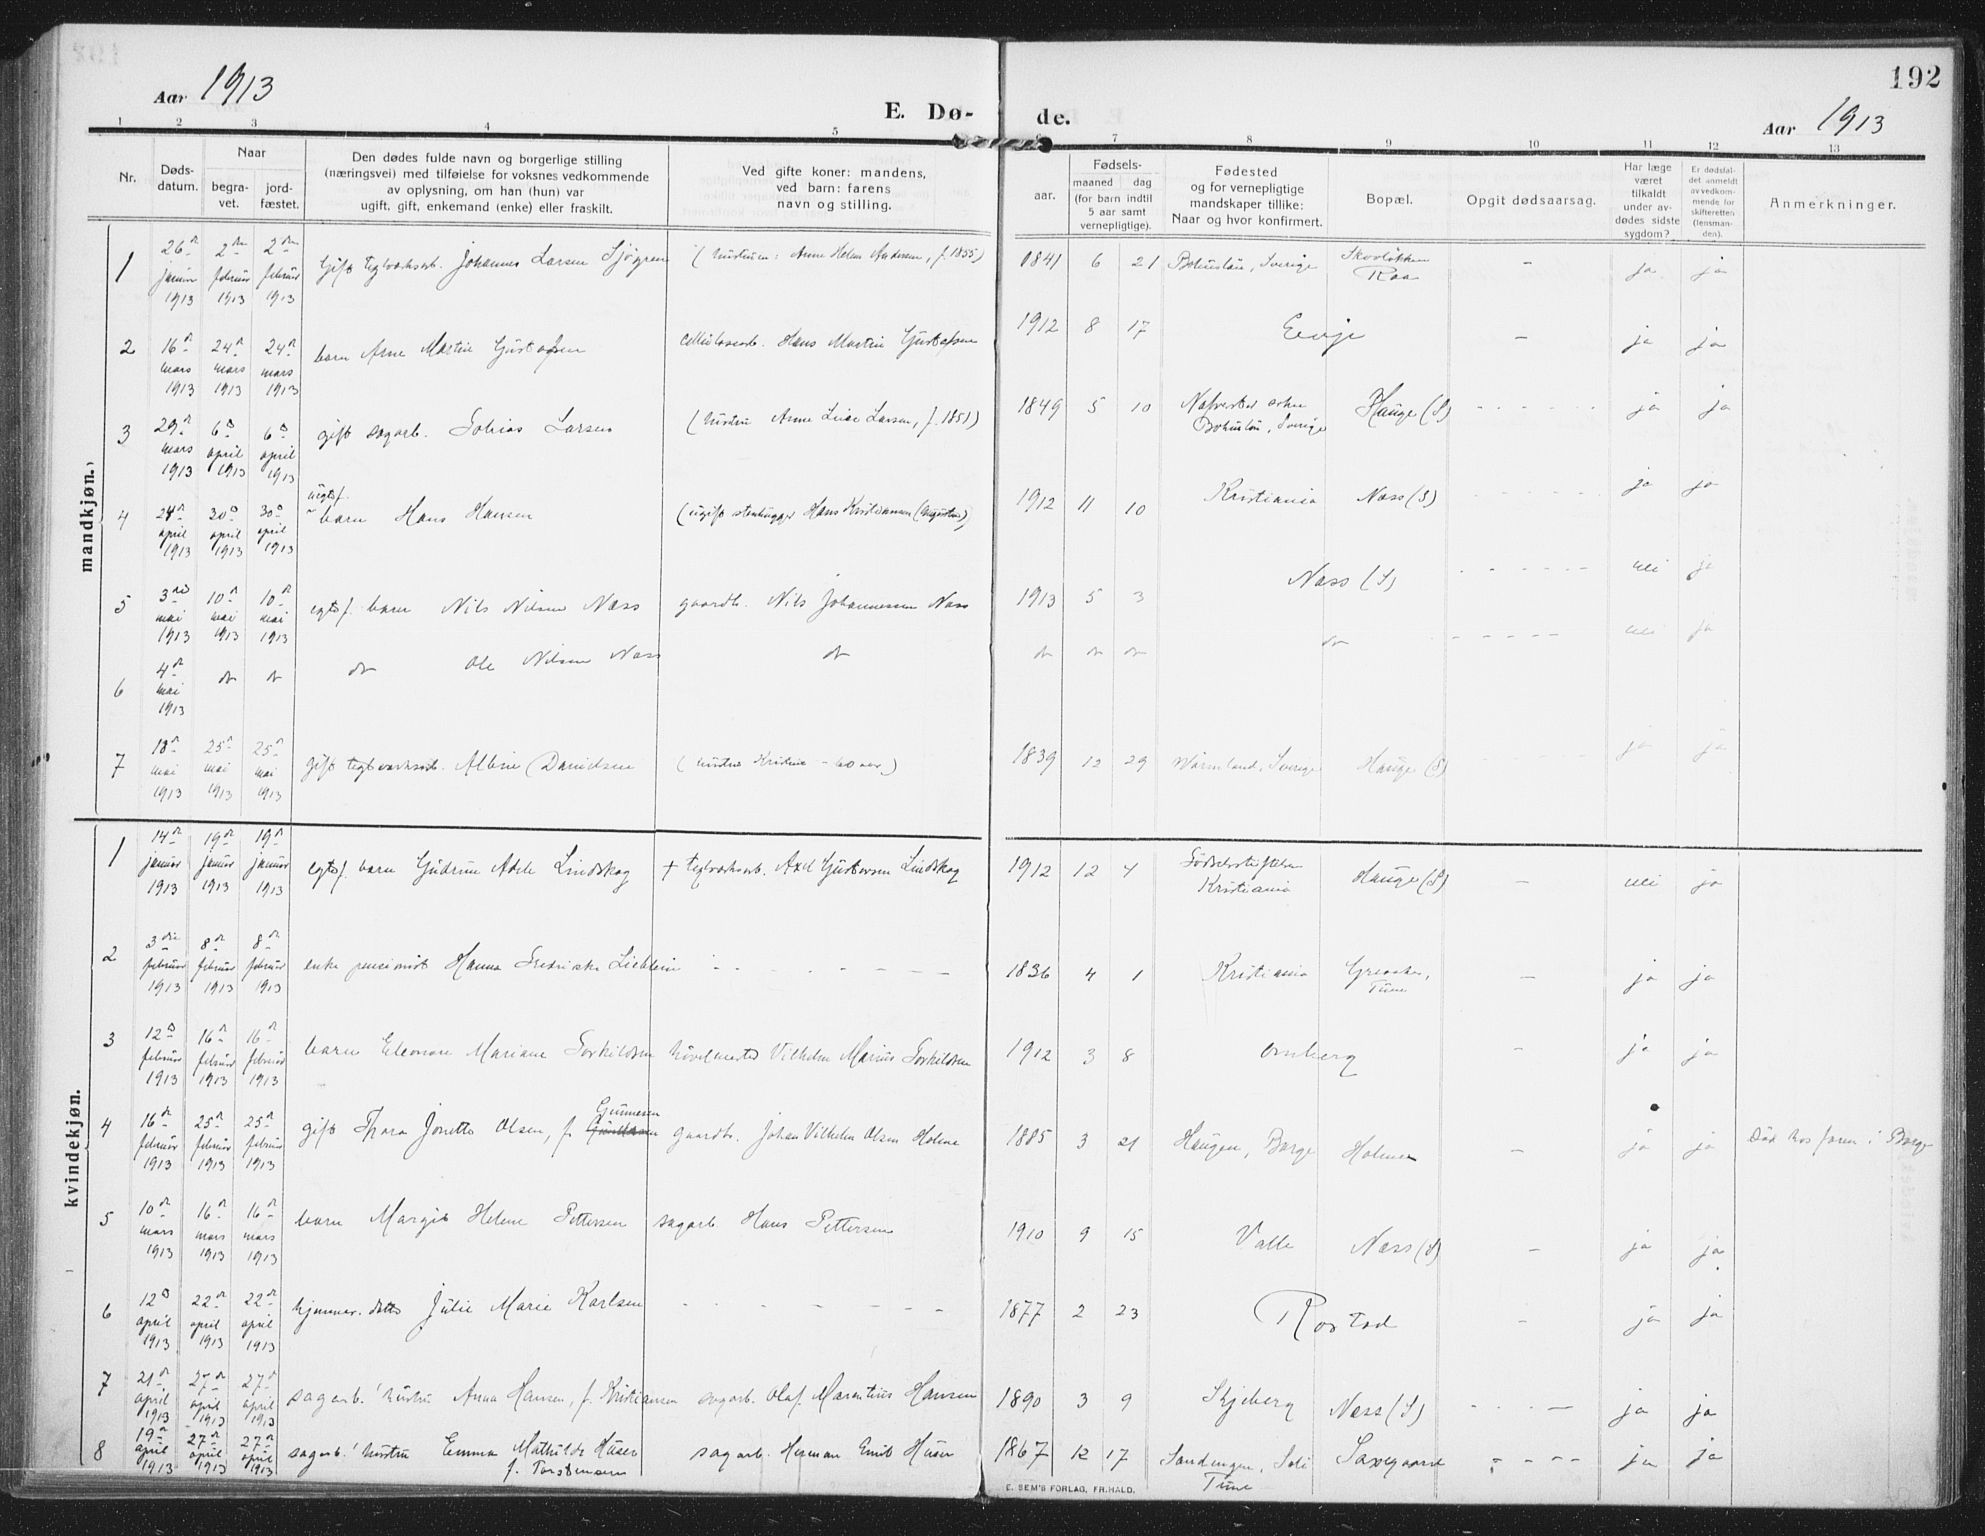 192
Aar 1913
E. Dø- de.
Aar 1913
1 2 3 4 5 6 7 8 9 10 11 12 13
Nr.
Døds-
datum.
Naar
begra-
vet.
jord-
fæstet.
Den dødes fulde navn og borgerlige stilling
(næringsvei) med tilføielse for voksnes vedkommende
av oplysning, om han (hun) var
ugift, gift, enkemand (enke) eller fraskilt.
Ved gifte koner: mandens,
ved barn: farens
navn og stilling.
Fødsels-
aar.
maaned dag
(for barn indtil
5 aar samt
vernepligtige).
Fødested
og for vernepligtige
mandskaper tillike:
Naar og hvor konfirmert.
Bopæl.
Opgit dødsaarsag.
Har læge
været
tilkaldt
under av-
dødes sidste
sygdom?
Er dødsfal-
det anmeldt
av vedkom-
mende for
skifteretten
(lensman-
den).
Anmerkninger.
mandkjøn.
1 26de januar 1913 2den februar 1913 2den februar 1913 Gift teglverksarb. Johannes Larsen Sjøgren (hustru: Anne Helene Andersen, f. 1855) 1841 6 21 Bohuslän, Sverige Skovløkken Raa — ja ja
2 16de mars 1913 24de mars 1913 24de mars 1913 barn Arne Martin Gustafsen cellulosearb. Hans Martin Gustafsen 1912 8 17 — ja ja
3 29de mars 1913 6te april 1913 6te april 1913 gift sagarb. Tobias Larsen (hustru Anne Lise Larsen, f. 1851) 1849 5 10 Bohuslän, Sverige Hauge (S) - - - - - - ja ja
4 24de april 1913 30te april 1913 30te april 1913 uegtef. barn Hans Hansen (ugift stenhugger Hans Kristiansen 1912 11 10 Kristiania Næss (S) - - - - - - ja ja
5 3die mai 1913 10de mai 1913 10de mai 1913 egtef. barn Nils Nilsen Næss gaardb. Nils Johannessen Næss 1913 5 3 Næss (S) - - - - - - nei ja
6 4de mai 1913 do do do Ole Nilsen Næss do do do do do - - - - - - nei ja
7 18de mai 1913 25de mai 1913 25de mai 1913 gift teglverksarb. Albin Danielsen (hustru Kristine - 60 aar) 1839 12 29 Wärmland, Sverige Hauge (S) - - - - - - ja ja
kvindekjøn.
1 14de januar 1913 19de januar 1913 19de januar 1913 egtef. barn Gudrun Adele Lindskog + teglverksarb. Axel Gustavsen Lindskog 1912 12 4 Fødselsstiftelsen Kristiania Hauge (S) — nei ja
2 3die februar 1913 8de februar 1913 8de februar 1913 enke pensionist Hanna Fredrikke Lieblein - - - - - - - 1836 4 1 Kristiania Greaaker, Tune — ja ja
3 12te februar 1913 16de februar 1913 16de februar 1913 barn Eleonore Mariane Torkildsen høvelmester Vilhelm Marius Torkildsen 1912 3 8 — ja ja
4 16de februar 1913 25de februar 1913 25de februar 1913 gift Thora Jonette Olsen, f. Gunnesen gaardb. Johan Vilhelm Olsen Holene 1885 3 21 Haugen, Borge Holene — ja ja Død hos faren i Borge
5 10de mars 1913 16de mars 1913 16de mars 1913 barn Margit Helene Pettersen sagarb Hans Pettersen 1910 9 15 Valle Næss (S) — ja ja
6 12te april 1913 22de april 1913 22de april 1913 hjemmev. datter Julie Marie Karlsen - - - - - - - 1877 2 23 Rostad — ja ja
7 21de april 1913 27de april 1913 27de april 1913 sagarb.' hustru Anna Hansen, f. Kristiansen sagarb. Olaf Marentius Hansen 1890 3 9 Skjeberg Næss (S) - - - - ja ja
8 19de april 1913 27de april 1913 27de april 1913 sagarb.' hustru Emma Mathilde Huser f. Torstensen sagarb. Herman Emil Huser 1867 12 17 Sandengen, Soli Tune Saxegaard - - - - ja ja
E. SEM'S FORLAG, FR.HALD.